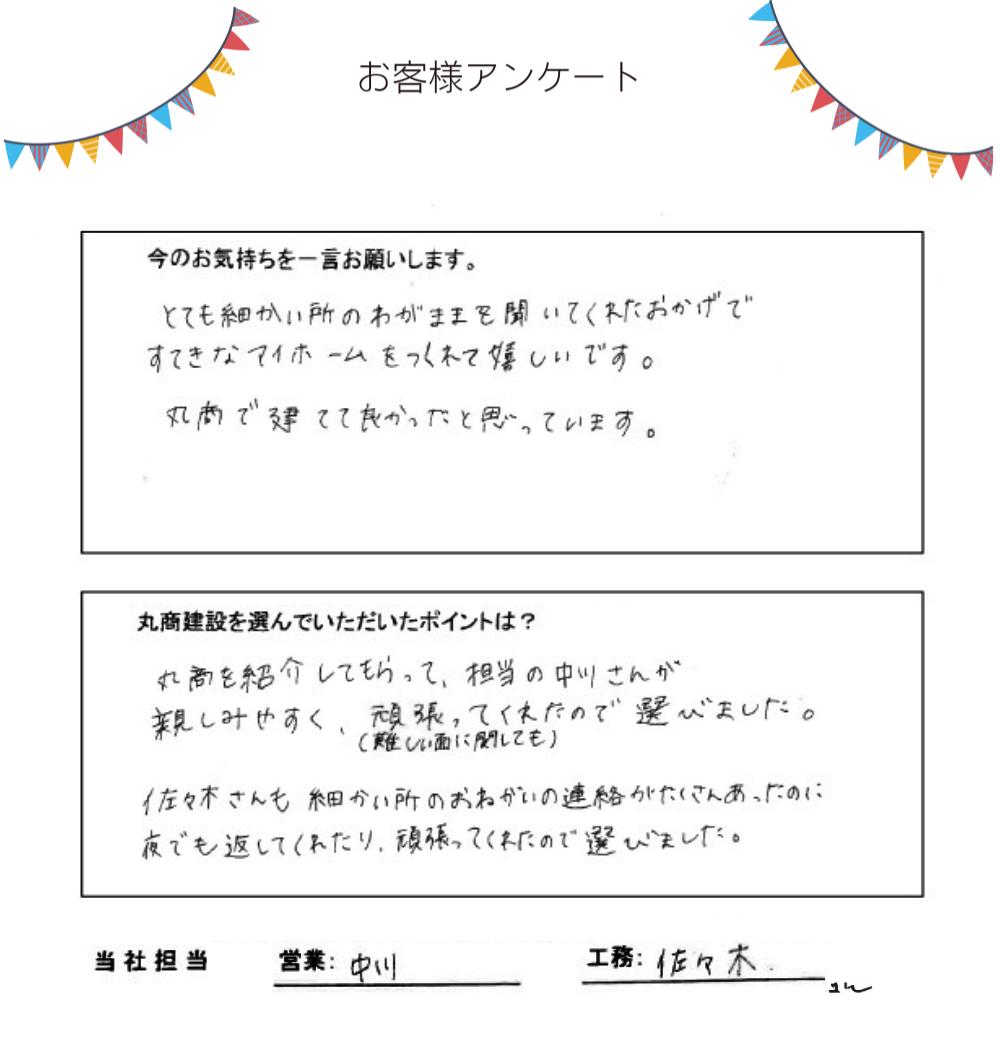 お客様アンケート
今のお気持ちを一言お願いします。
とても細かい所のわがままを聞いてくれたおかげで
すてきなマイホームをつくれて嬉しいです。
丸商で建てて良かったと思っています。
丸商建設を選んでいただいたポイントは？
丸商を紹介してもらって、担当の中川さんが
親しみやすく、頑張ってくれたので選びました。
(難しい面に関しても)
佐々木さんも細かい所のおねがいの連絡がたくさんあったのに
夜でも返してくれたり、頑張ってくれたので選びました。
当社担当 営業: 中川 工務: 佐々木
さん